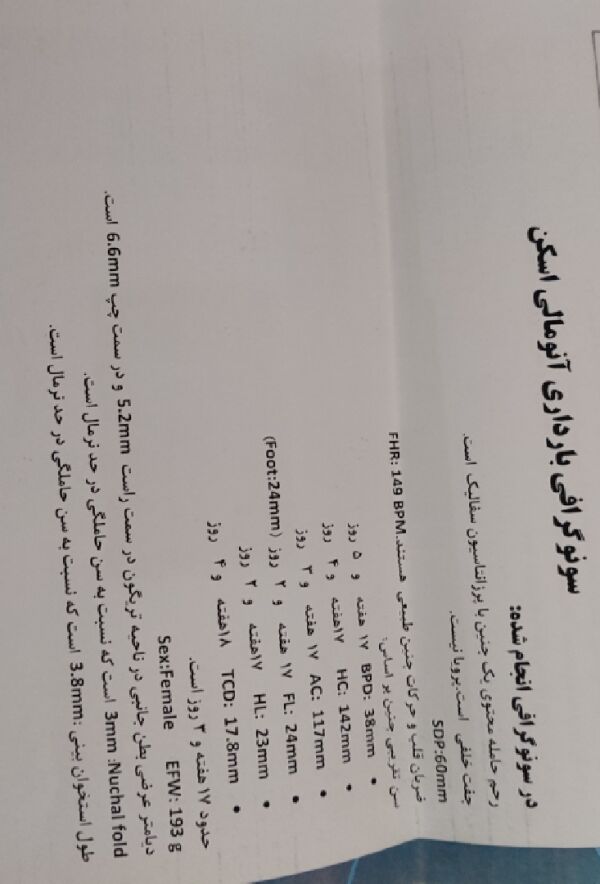 سونوگرافی بارداری آنومالی اسکن
در سونوگرافی انجام شده:
رحم حامله محتوی یک جنین با پرزانتاسیون سفالیک است.
جفت خلفی است.پرویا نیست.
SDP:60mm
ضربان قلب و حرکات جنین طبیعی هستند.FHR: 149 BPM
سن تقریبی جنین بر اساس:
• BPD: 38mm ۱۷ هفته و ۵ روز
• HC: 142mm ۱۷هفته و ۴ روز
• AC: 117mm ۱۷ هفته و ۳ روز
• FL: 24mm ۱۷ هفته و ۲ روز (Foot:24mm)
• HL: 23mm ۱۷هفته و ۲ روز
• TCD: 17.8mm ۱۸هفته و ۴ روز
حدود ۱۷ هفته و ۳ روز است.
Sex:Female EFW: 193 g
دیامتر عرضی بطن جانبی در ناحیه تریگون در سمت راست 5.2mm و در سمت چپ 6.6mm است.
Nuchal fold: 3mm است که نسبت به سن حاملگی در حد نرمال است.
طول استخوان بینی :3.8mm است که نسبت به سن حاملگی در حد نرمال است.